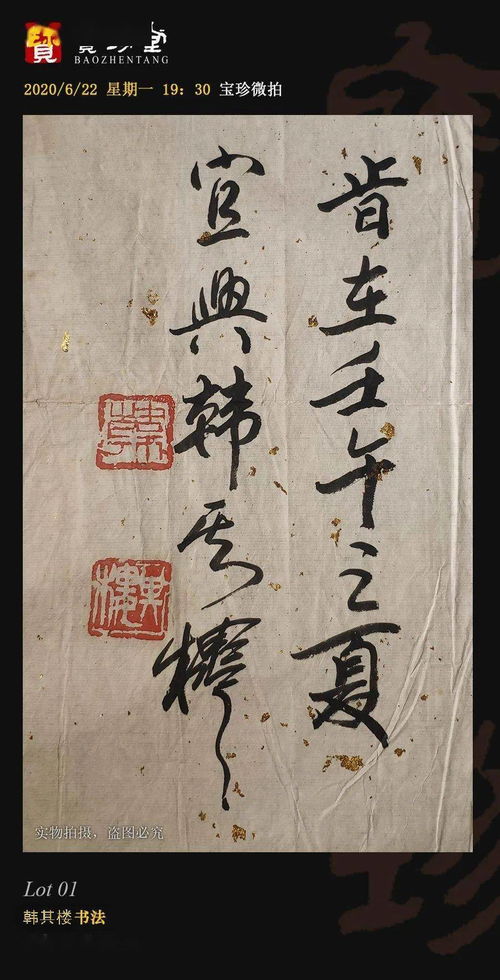 BAOZHENTANG
2020/6/22 星期一 19：30 宝珍微拍
旹在壬午之夏
宜興韩其樓
其樓
实物拍摄，盗图必究
Lot 01
韩其楼书法